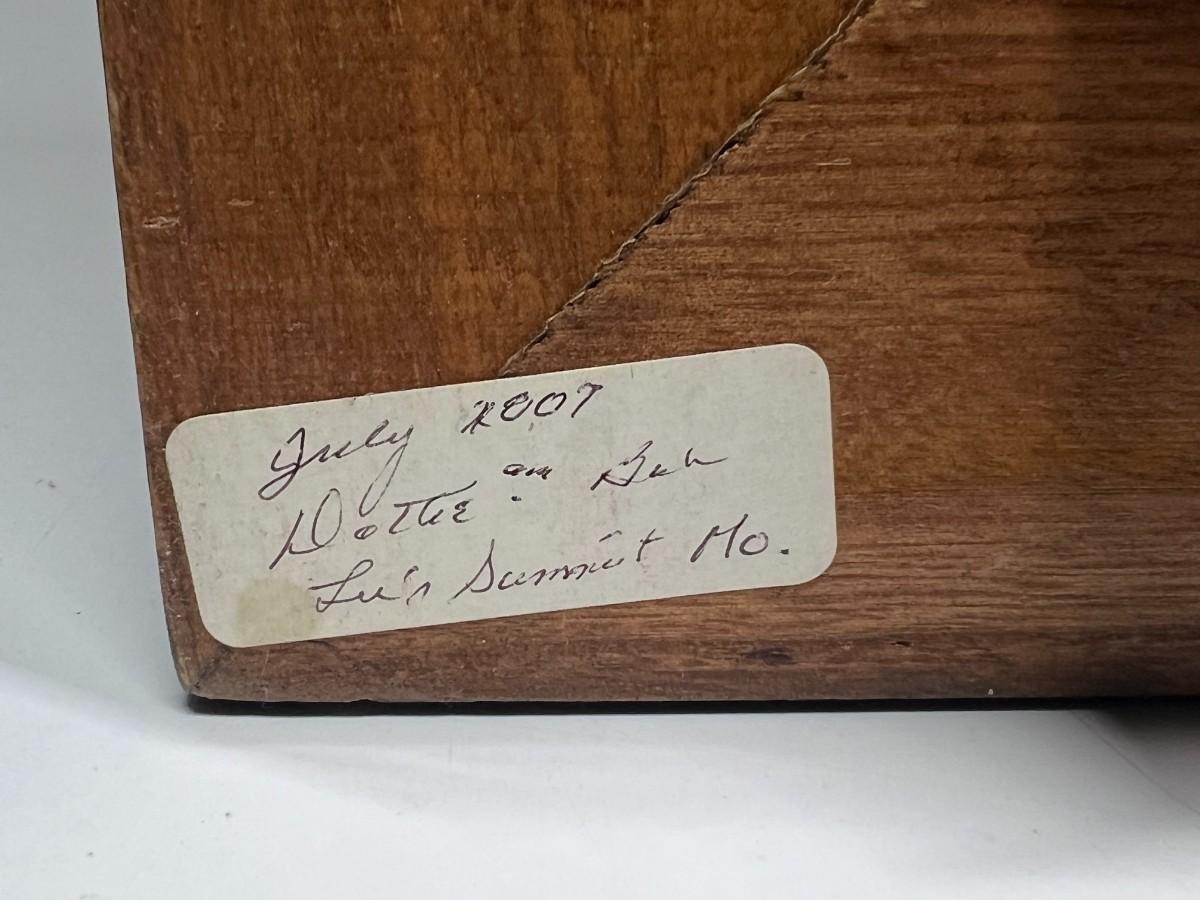 July 2007
Dottie an Bob
Lee's Summit Mo.